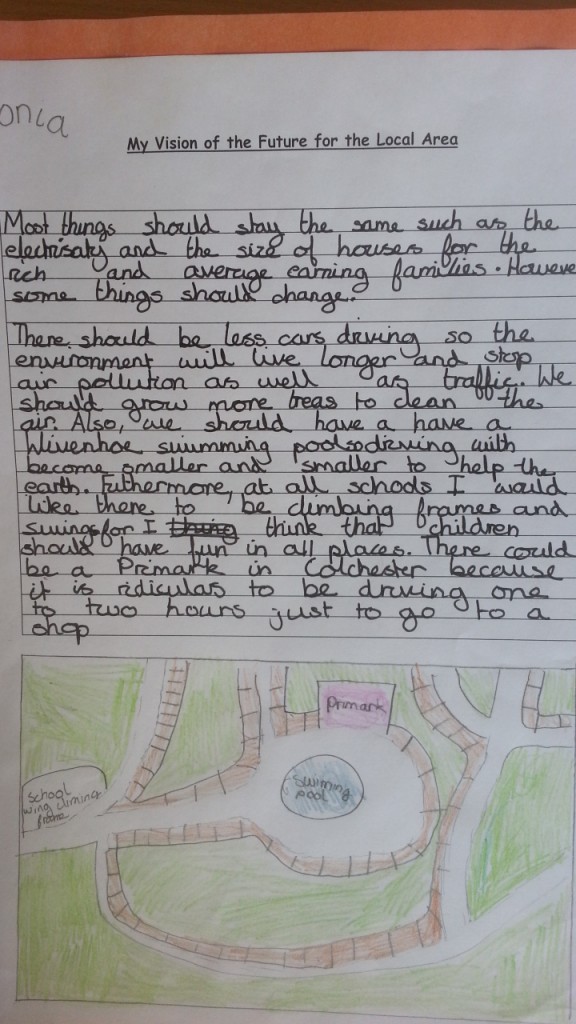 onia
My Vision of the Future for the Local Area
Most things should stay the same such as the
electrisaty and the size of houses for the
rich and average earning families. Howeve
some things should change.
There should be less cars driving so the
environment will live longer and stop
air pollution as well as traffic. We
should grow more treas to clean the
air. Also, we should have a have a
Wivenhoe swimming poolsodirving with
become smaller and smaller to help the
earth. Futhermore, at all schools I would
like there to be climbing frames and
swings for I thing think that children
should have fun in all places. There could
be a Primark in Colchester because
it is ridiculas to be driving one
to two hours just to go to a
shop
Primark
swiming
pool
school
wing climing
frame